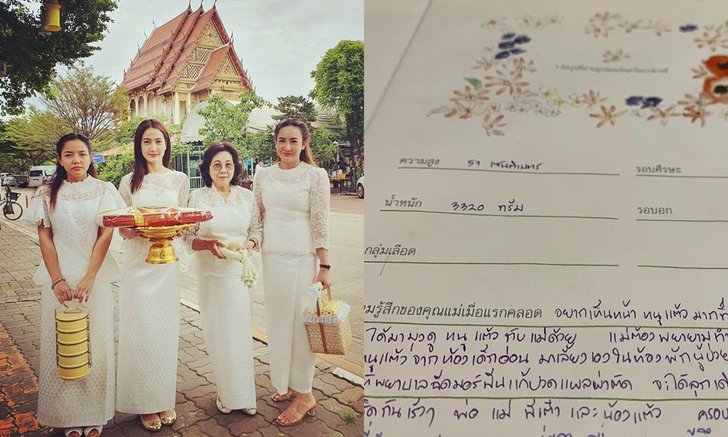 ความสูง 51 เซนติเมตร รอบศีรษะ
น้ำหนัก 3320 กรัม รอบอก
กลุ่มเลือด
ามรู้สึกของคุณแม่เมื่อแรกคลอด อยากเห็นหน้า หนูแต้ว มากที่
ได้มามุงดู หนูแต้ว กับแม่ด้วย แม่ต้องพยายาม
นูแต้ว จากห้องเด็กอ่อน มาเลี้ยงเองในห้องพักผู้ป่วย
พยาบาลฉีดมอร์ฟีนแก้ปวดแผลผ่าตัด จะได้ลูก
กันเร็วๆ พ่อ แม่ พี่เต้า และน้องแต้ว ครอบ